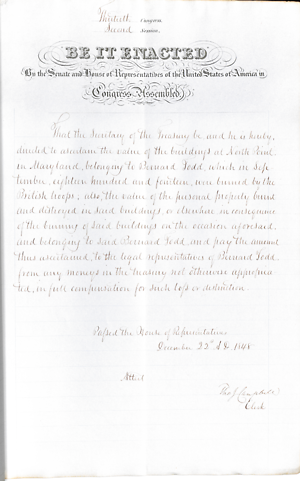 Thirtieth Congress
Second Session
BE IT ENACTED
By the Senate and House of Representatives of the United States of America in
Congress Assembled,
That the Secretary of the Treasury be and he is hereby,
directed to ascertain the value of the buildings at North Point
in Maryland, belonging to Bernard Todd, which in Sep
tember, eighteen hundred and fourteen, were burned by the
British troops; also, the value of the personal property burned
and destroyed in said buildings, or elsewhere in consequence
of the burning of said buildings on the occasion aforesaid,
and belonging to said Bernard Todd, and pay the amount
thus ascertained, to the legal representatives of Bernard Todd,
from any moneys in the treasury not otherwise appropria
ted, in full compensation for such loss or destruction.
Passed the House of Representatives
December 22d 1848
Attest
Tho J Campbell
Clerk